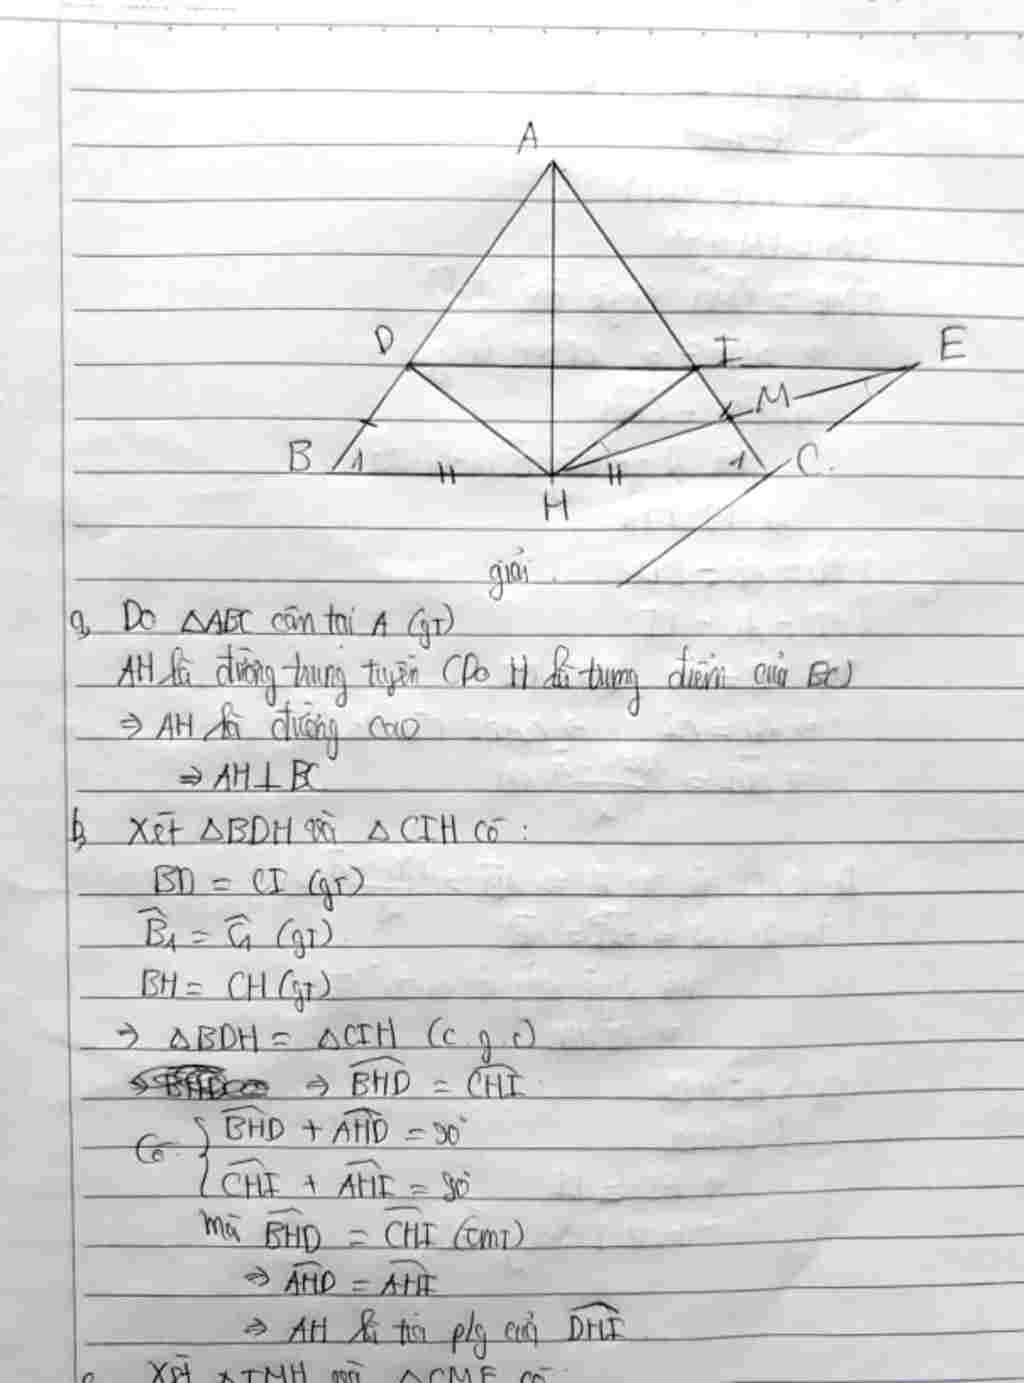 A
D
I
E
M
B
1
1
C.
H
giải.
a, Do △ABC cân tại A (gT)
AH là đường trung tuyến (Do H là trung điểm của BC)
⇒ AH là đường cao
⇒ AH ⊥ BC
b, Xét △BDH và △CIH có:
BD = CI (gT)
B̂₁ = Ĉ₁ (gT)
BH = CH (gT)
⇒ △BDH = △CIH (c g c)
⇒ \widehat{BHD} = \widehat{CHI}
Có { \widehat{BHD} + \widehat{AHD} = 90°
\widehat{CHI} + \widehat{AHI} = 90°
mà \widehat{BHD} = \widehat{CHI} (cmT)
⇒ \widehat{AHD} = \widehat{AHI}
⇒ AH là tia p/g của \widehat{DHI}
c, Xét △IMH và △CME có: